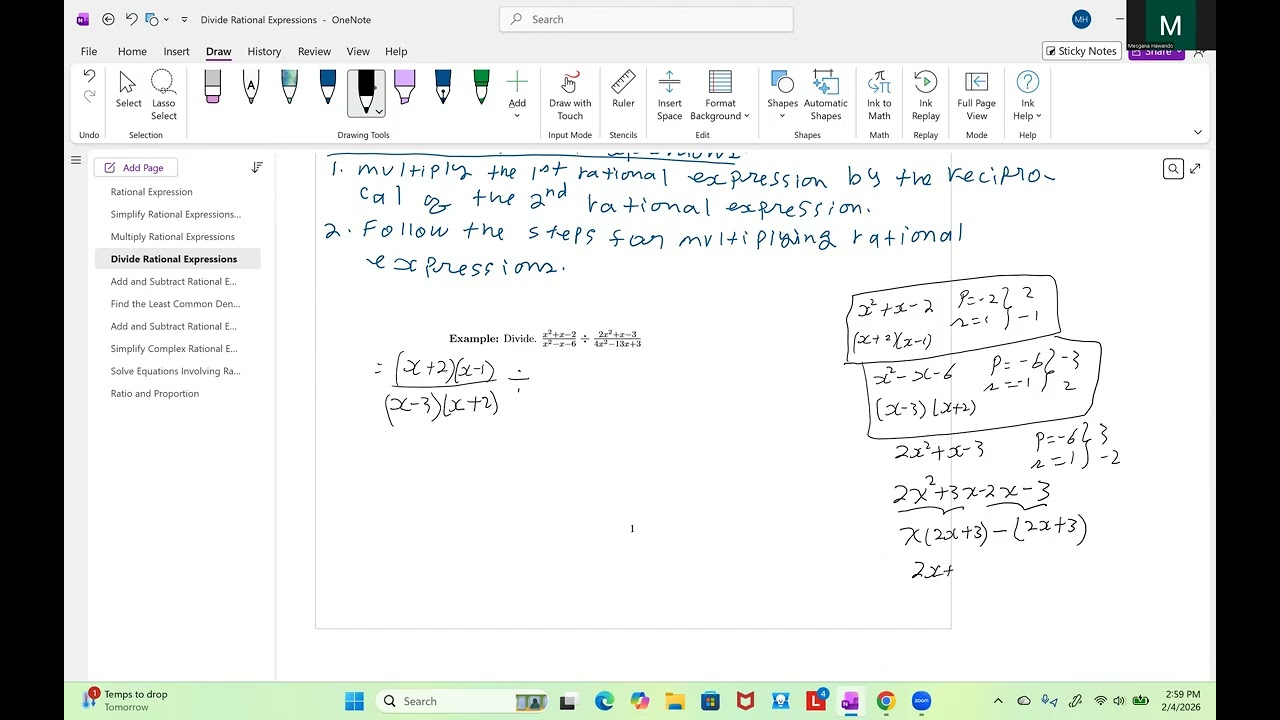 Divide Rational Expressions - OneNote
Search
MH
M
Mesgana Hawando
File Home Insert Draw History Review View Help
Sticky Notes
Share
Select
Lasso Select
Add
Draw with Touch
Ruler
Insert Space
Format Background
Shapes
Automatic Shapes
Ink to Math
Ink Replay
Full Page View
Ink Help
Undo
Selection
Drawing Tools
Input Mode
Stencils
Edit
Shapes
Math
Replay
Mode
Help
Add Page
Rational Expression
Simplify Rational Expressions...
Multiply Rational Expressions
Divide Rational Expressions
Add and Subtract Rational E...
Find the Least Common Den...
Add and Subtract Rational E...
Simplify Complex Rational E...
Solve Equations Involving Ra...
Ratio and Proportion
1. multiply the 1st rational expression by the recipro-
cal of the 2nd rational expression.
2. Follow the steps for multiplying rational
expressions.
Example: Divide. (x²+x−2)/(x²−x−6) ÷ (2x²+x−3)/(4x²−13x+3)
= (x+2)(x-1)/(x-3)(x+2) ÷
x²+x-2 P=-2} 2
s=1 } -1
(x+2)(x-1)
x²-x-6 P=-6} -3
s=-1 } 2
(x-3)(x+2)
2x²+x-3 P=-6} 3
s=1 } -2
2x²+3x-2x-3
x(2x+3)-(2x+3)
2x+
1
1
Temps to drop
Tomorrow
Search
4
2:59 PM
2/4/2026